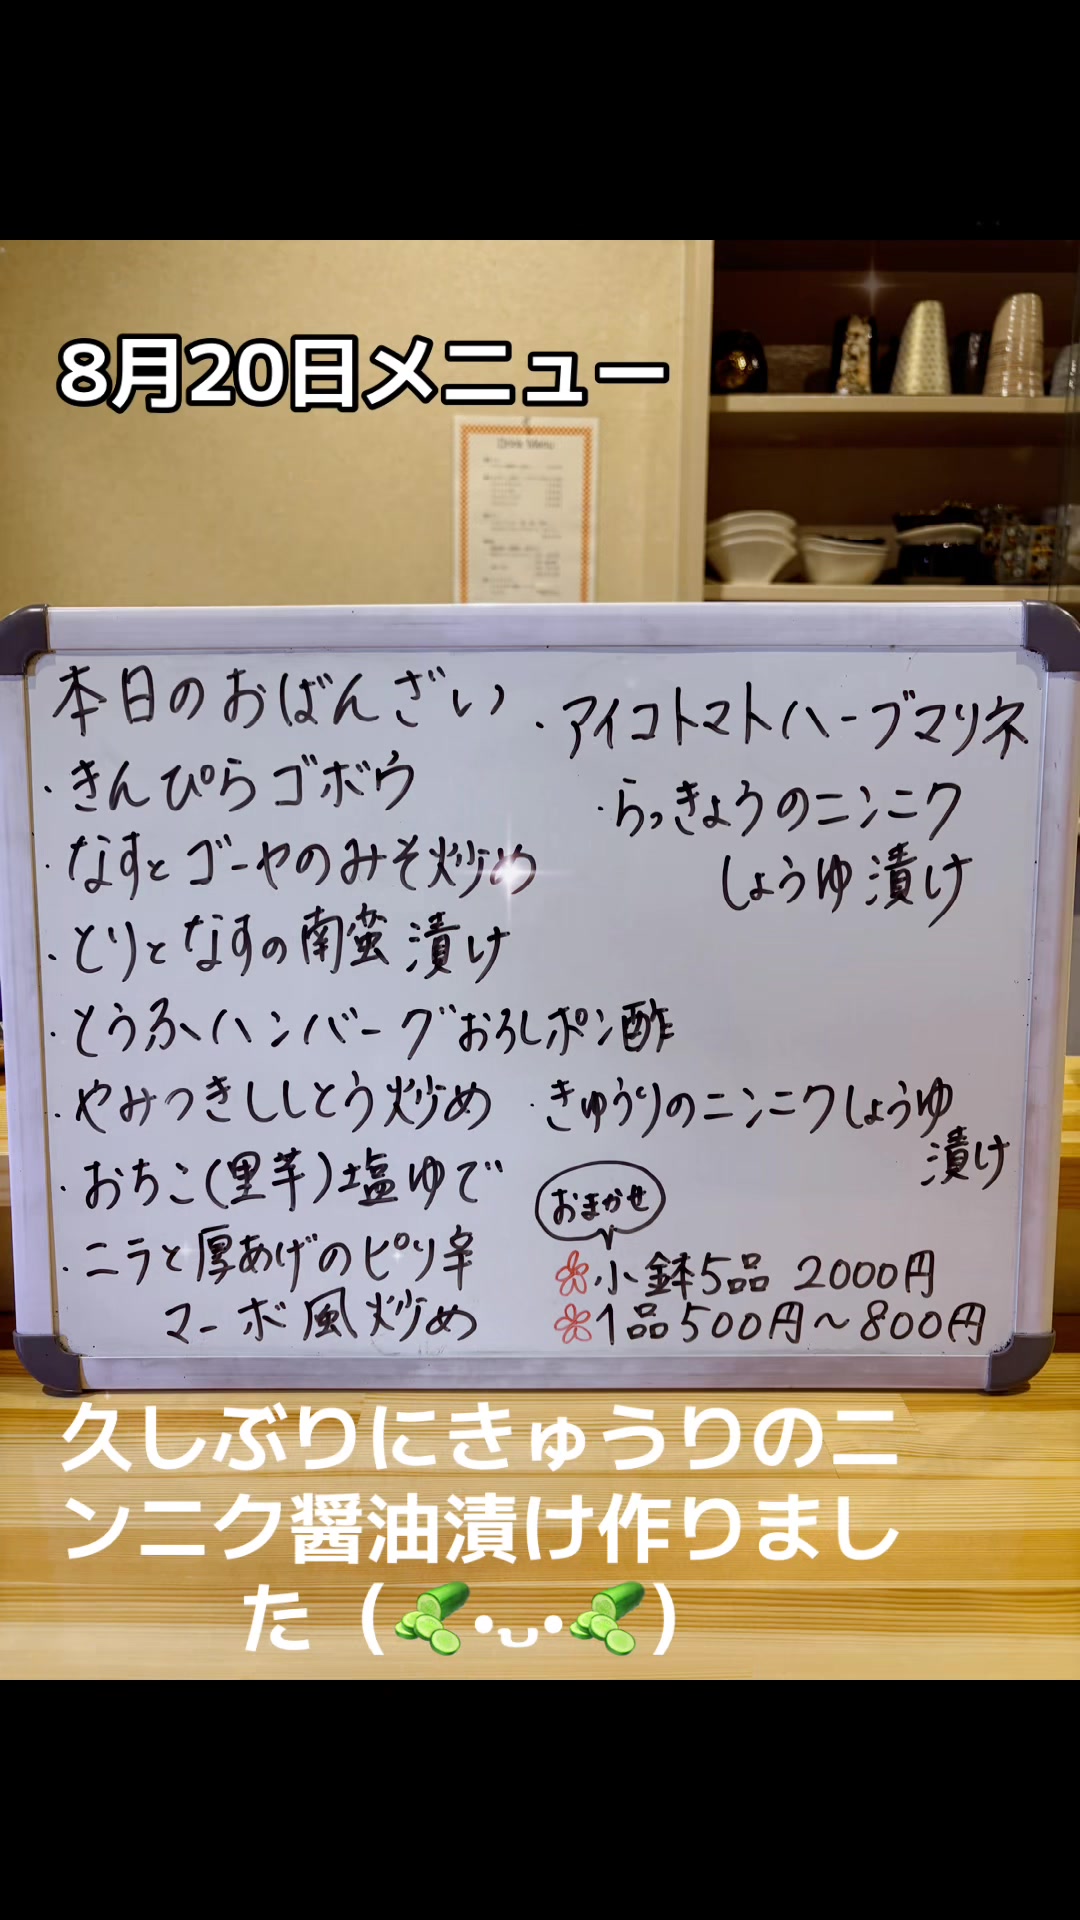 8月20日メニュー
Drink Menu
本日のおばんざい
・きんぴらゴボウ
・なすとゴーヤのみそ炒め
・とりとなすの南蛮漬け
・とうふハンバーグおろしポン酢
・やみつきししとう炒め
・おちこ(里芋)塩ゆで
・ニラと厚あげのピリ辛
マーボ風炒め
・アイコトマトハーブマリネ
・らっきょうのニンニク
しょうゆ漬け
・きゅうりのニンニクしょうゆ
漬け
おまかせ
小鉢5品 2000円
1品500円〜800円
久しぶりにきゅうりのニ
ンニク醤油漬け作りまし
た（🥒•ᴗ•🥒）